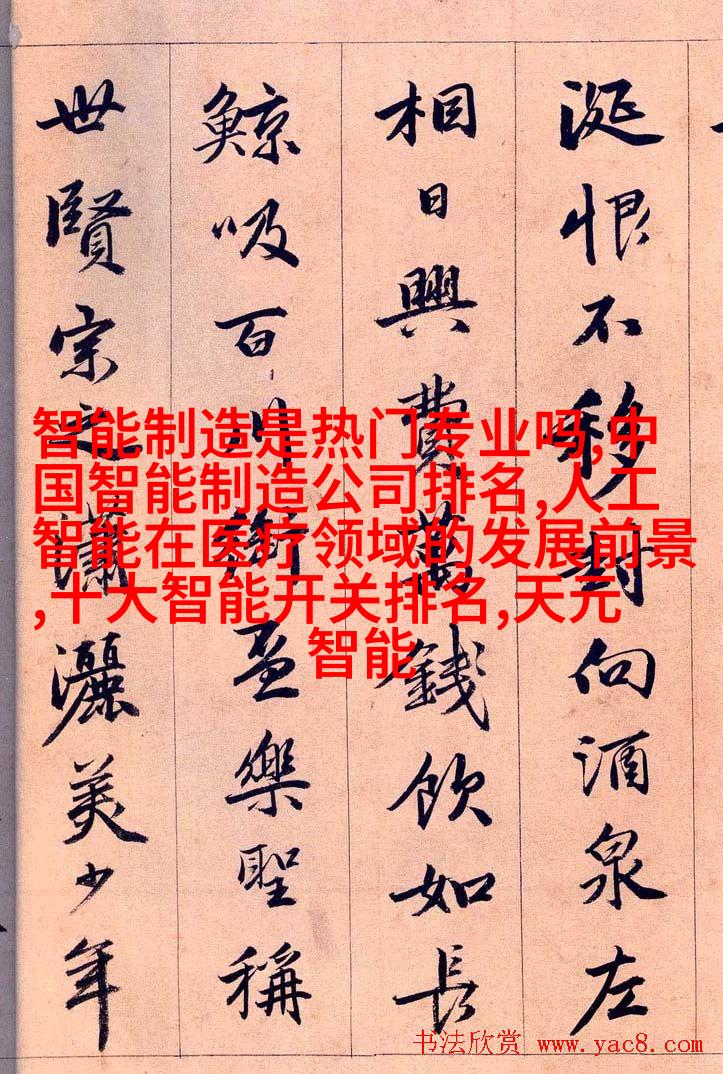 涎恨不移封向酒泉左
相日興費萬錢飲如長
鯨吸百川銜盃樂聖稱
世賢宗之瀟灑美少年
智能制造是热门专业吗,中
国智能制造公司排名,人工
智能在医疗领域的发展前景
,十大智能开关排名,天元
智能
书法欣赏 www.yac8.com